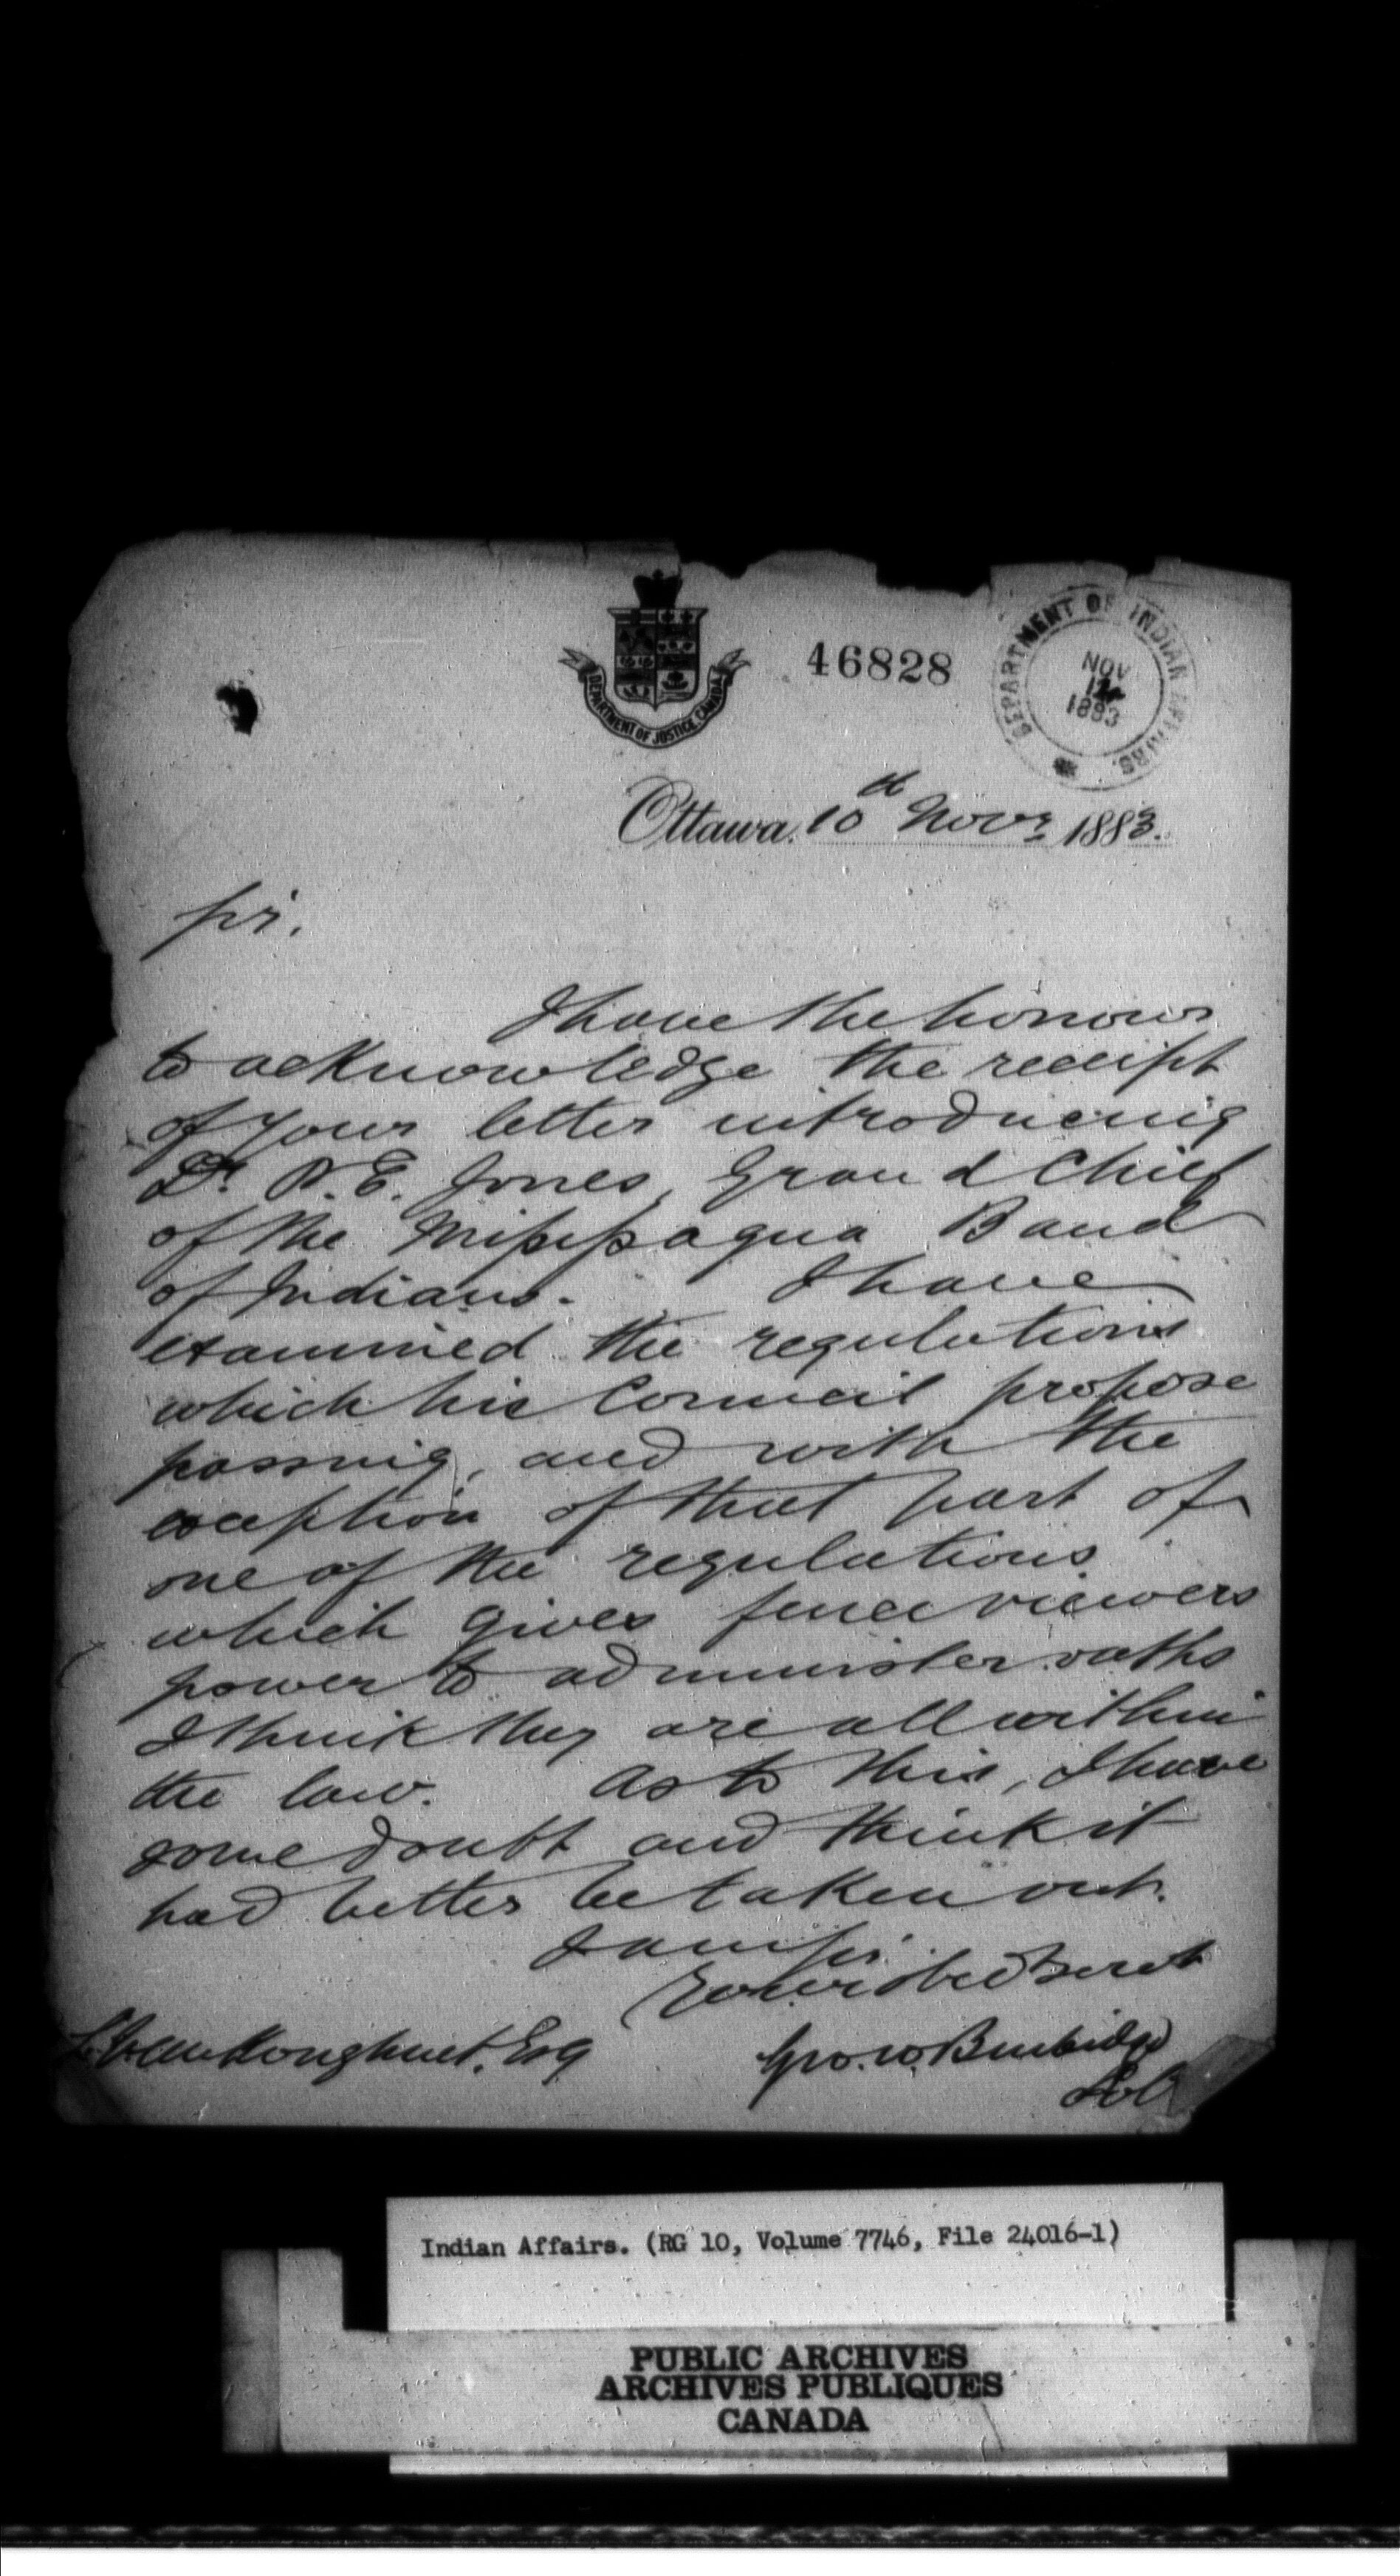 DEPARTMENT OF JUSTICE, CANADA
46828
DEPARTMENT OF INDIAN AFFAIRS.
NOV
12
1883
Ottawa, 10th Novr 1883.
Sir,
I have the honour
to acknowledge the receipt
of your letter introducing
Dr. P. E. Jones, Grand Chief
of the Missisagua Band
of Indians. I have
examined the regulations
which his Council propose
passing, and with the
exception of that part of
one of the regulations
which gives fence viewers
power to administer oaths
I think they are all within
the law. As to this, I have
some doubt and think it
had better be taken out.
I am Sir
Your obed Servt
Geo. W. Burbidge
L. VanKoughnet, Esq
Indian Affairs. (RG 10, Volume 7746, File 24016-1)
PUBLIC ARCHIVES
ARCHIVES PUBLIQUES
CANADA